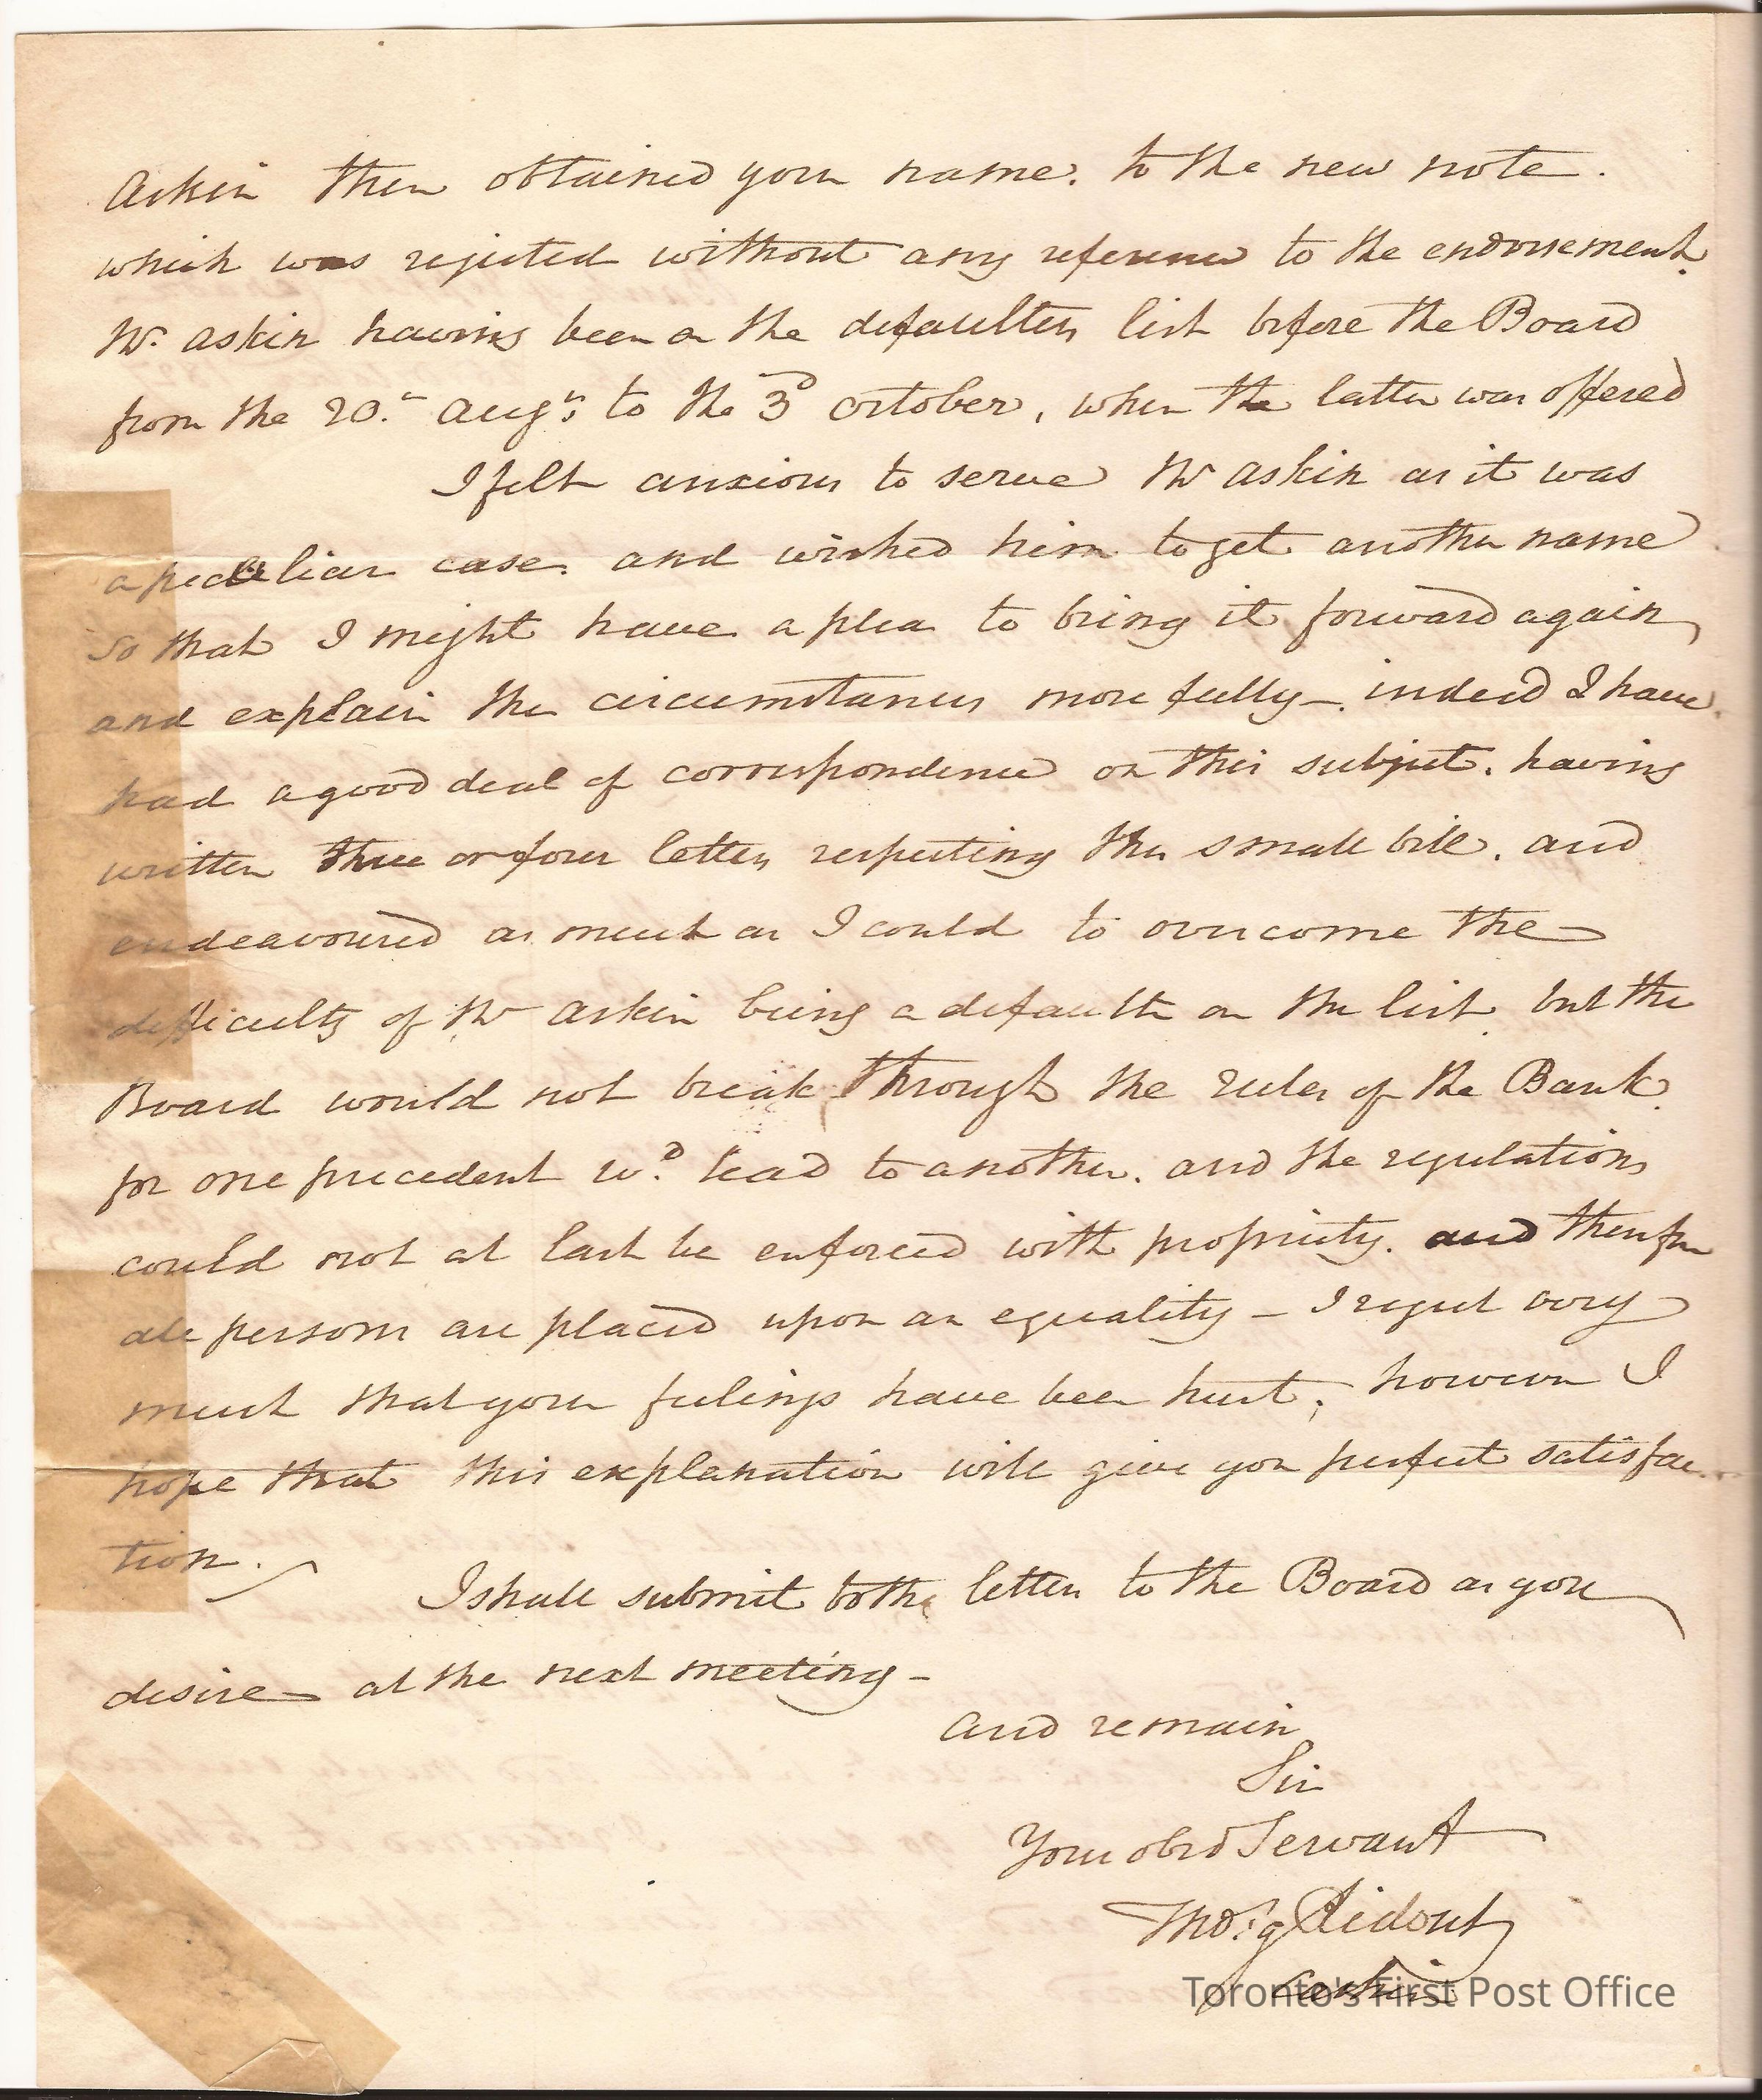 Askin then obtained your name. to the new note.
which was rejected without any reference to the endorsement.
Mr Askin having been on the defaulters list before the Board
from the 20.th Augt. to the 3d October, when the latter was offered
I felt anxious to serve Mr Askin as it was
a peculiar case. and wished him to get another name
so that I might have a plea to bring it forward again,
and explain the circumstances more fully — indeed I have
had a good deal of correspondence on this subject. having
written three or four letters respecting this small bill. and
endeavoured as much as I could to overcome the
difficulty of Mr Askin being a defaulter on the list but the
Board would not break through the rules of the Bank
for one precedent wd. lead to another. and the regulations
could not at last be enforced with propriety. and therefore
all persons are placed upon an equality — I regret very
much that your feelings have been hurt; however I
hope that this explanation will give you perfect satisfac..
tion.
I shall submit both letters to the Board as you
desire at the next meeting —
and remain
Sir
Your obed Servant
Thos. G Ridout
Cashier
Toronto's First Post Office